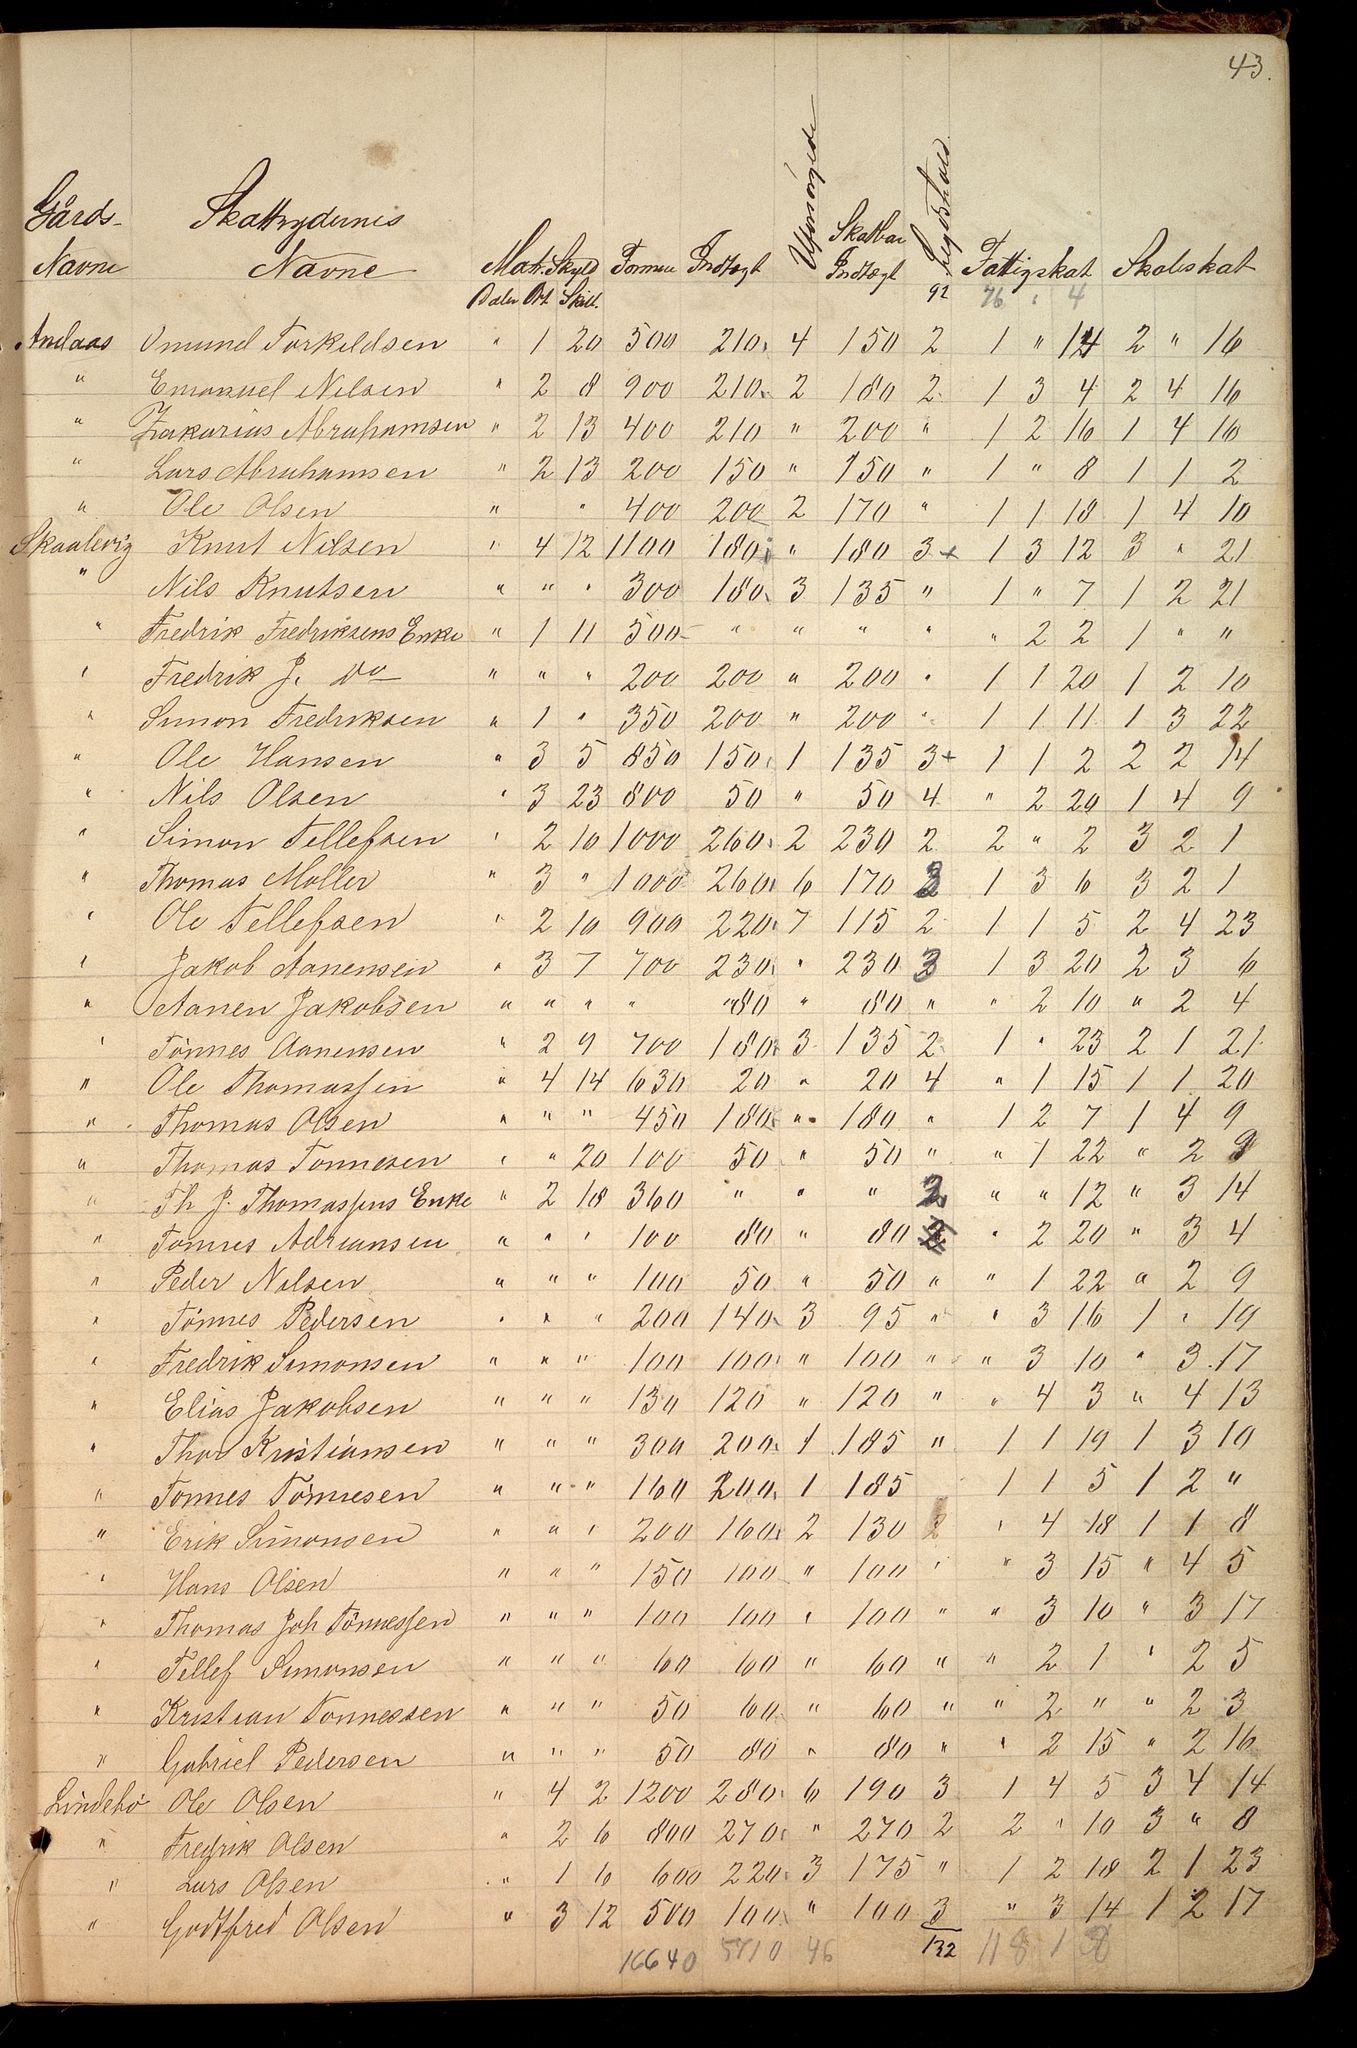 43.
Gårds- Navne Skattnydernes Navne Matr. Skyld Formue Indtægt Uforsørgede Skatbar Indtægt Legdshold Fattigskat Skoleskat
Daler Ort Skill. 92 76 " 4
Andaas Omund Torkildsen " 1 20 500 210 4 150 2 1 " 14 2 " 16
" Emanuel Nilsen " 2 8 900 210 2 180 2 1 3 4 2 4 16
" Zakarias Abrahamsen " 2 13 400 210 " 200 " 1 2 16 1 4 16
" Lars Abrahamsen " 2 13 200 150 " 150 " 1 " 8 1 1 2
" Ole Olsen " " 400 200 2 170 " 1 1 18 1 4 10
Skaalevig Knut Nilsen " 4 12 1100 180 " 180 3+ 1 3 12 3 " 21
" Nils Knutsen " " " 300 180 3 135 " 1 " 7 1 2 21
" Fredrik Fredriksens Enke " 1 11 500 " " " " " 2 2 1 " "
" Fredrik J. Do " " " 200 200 " 200 " 1 1 20 1 2 10
" Simon Fredriksen " 1 " 350 200 " 200 " 1 1 11 1 3 22
" Ole Hansen " 3 5 850 150 1 135 3+ 1 1 2 2 2 14
" Nils Olsen " 3 23 800 50 " 50 4 " 2 20 1 4 9
" Simon Tellefsen " 2 10 1000 260 2 230 2 2 " 2 3 2 1
" Thomas Moller " 3 " 1000 260 6 170 3 1 3 6 3 2 1
" Ole Tellefsen " 2 10 900 220 7 115 2 1 1 5 2 4 23
" Jakob Aanensen " 3 7 700 230 " 230 3 1 3 20 2 3 6
" Aanen Jakobsen " " " " 80 " 80 " " 2 10 " 2 4
" Tönnes Aanensen " 2 9 700 180 3 135 2 1 " 23 2 1 21
" Ole Thomassen " 4 14 630 20 " 20 4 " 1 15 1 1 20
" Thomas Olsen " " " 450 180 " 180 " 1 2 7 1 4 9
" Thomas Tonnesen " " 20 100 50 " 50 " " 1 22 " 2 9
" Th J. Thomassens Enke " 2 18 360 " " " 2 " " 12 " 3 14
" Tonnes Adriansen " " " 100 80 " 80 2 " 2 20 " 3 4
" Peder Nilsen " " " 100 50 " 50 " " 1 22 " 2 9
" Tönnes Pedersen " " " 200 140 3 95 " " 3 16 1 " 19
" Fredrik Simonsen " " " 100 100 " 100 " " 3 10 " 3 17
" Elias Jakobsen " " " 130 120 " 120 " " 4 3 " 4 13
" Thor Kristiansen " " " 300 200 1 185 " 1 1 19 1 3 10
" Tonnes Tönnesen " " " 160 200 1 185 1 1 5 1 2 "
" Erik Simonsen " " " 200 160 2 130 2 " 4 18 1 1 8
" Hans Olsen " " " 150 100 " 100 " " 3 15 " 4 5
" Thomas Joh Tönnessen " " " 100 100 " 100 " " 3 10 " 3 17
" Tellef Simonsen " " " 60 60 " 60 " " 2 1 " 2 5
" Kristian Tonnessen " " " 50 60 " 60 " " 2 " " 2 3
" Gabriel Pedersen " " " 50 80 " 80 " " 2 15 " 2 16
Lindebö Ole Olsen " 4 2 1200 280 6 190 3 1 4 5 3 4 14
" Fredrik Olsen " 2 6 800 270 " 270 2 2 " 10 3 " 8
" Lars Olsen " 1 6 600 220 3 175 " 1 2 18 2 1 23
" Godtfred Olsen " 3 12 500 100 " 100 3 " 3 14 1 2 17
16640 5710 46 132 118 1